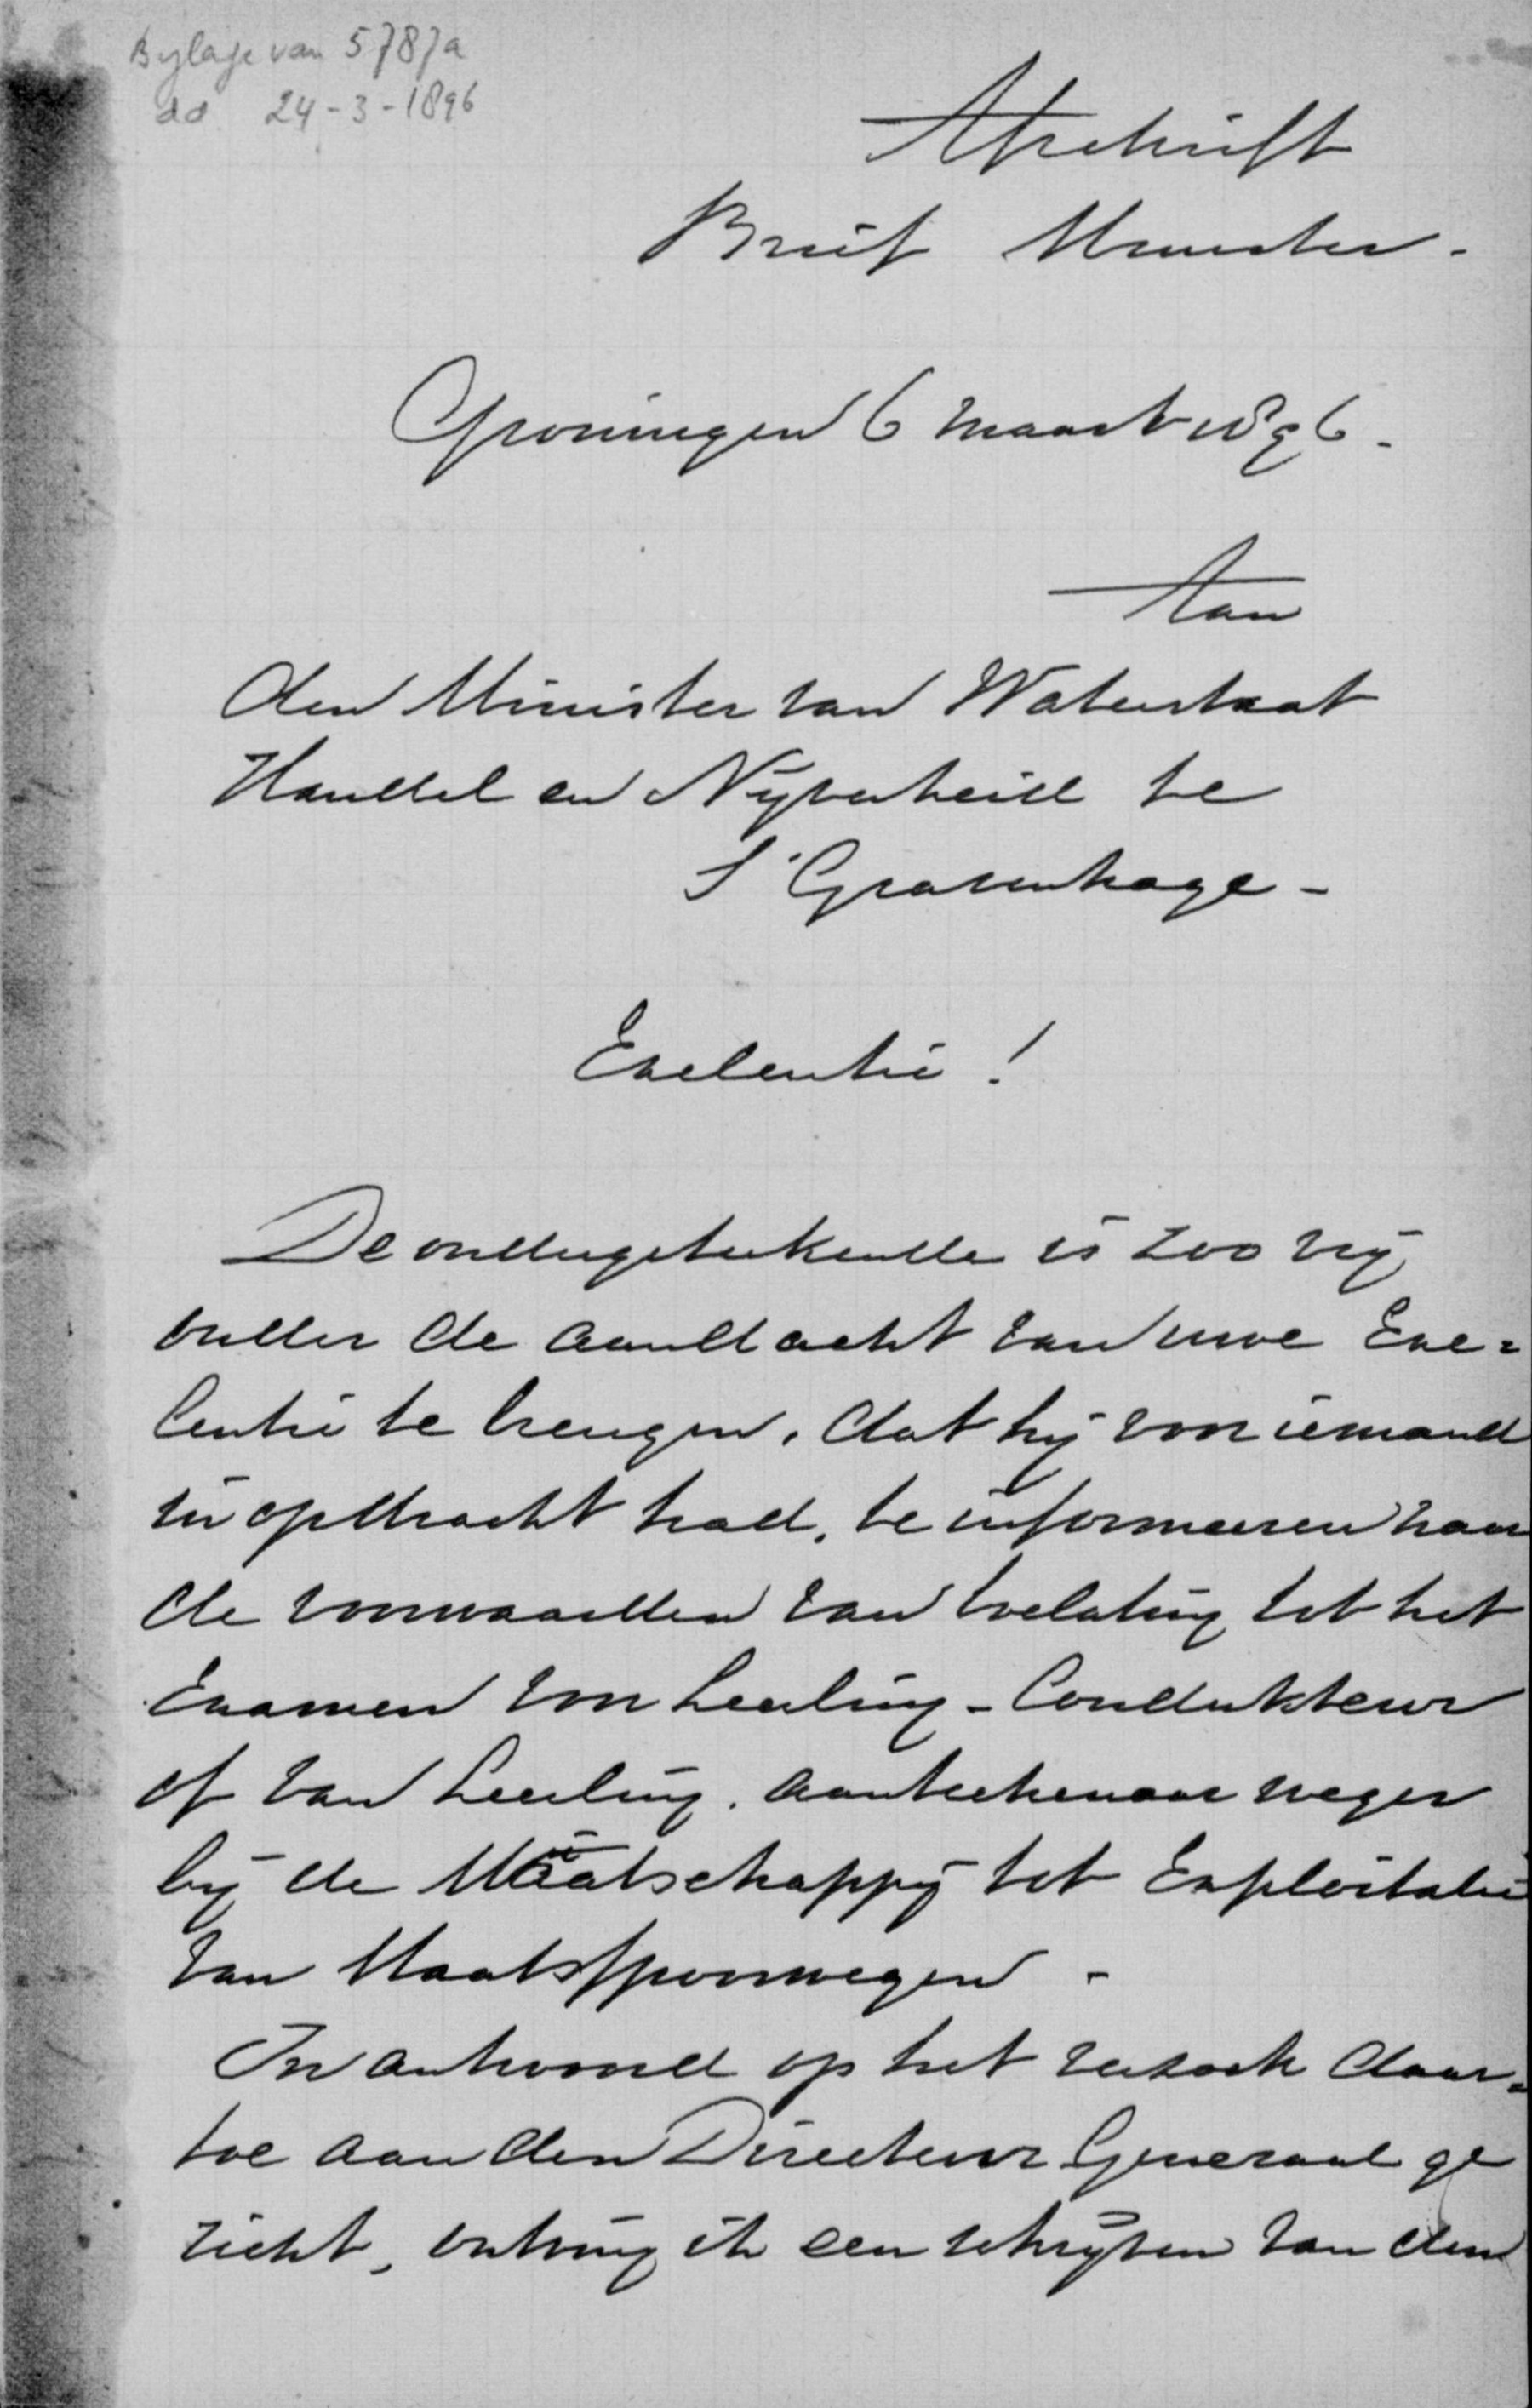 Bijlage van 5787a
dd 24-3-1896
Afschrift
Brief Minister.
Groningen 6 Maart 1896.
Aan
den Minister van Waterstaat
Handel en Nijverheid te
S'Gravenhage-
Exelentie!
De ondergetekende is zoo vrij
onder de aandacht van uwe Exe=
lentie te brengen, dat hij van iemand
in opdracht had, te informeeren naar
de voorwaarden van toelating tot het
Examen van Leerling-Condukteur
of van Leerling. aanteekenaar weger
bij de Maatschappij tot Exploitatie
van Staatsspoorwegen -
In antwoord op het verzoek daar=
toe aan den Directeur Generaal ge
richt, ontving ik een schrijven van den